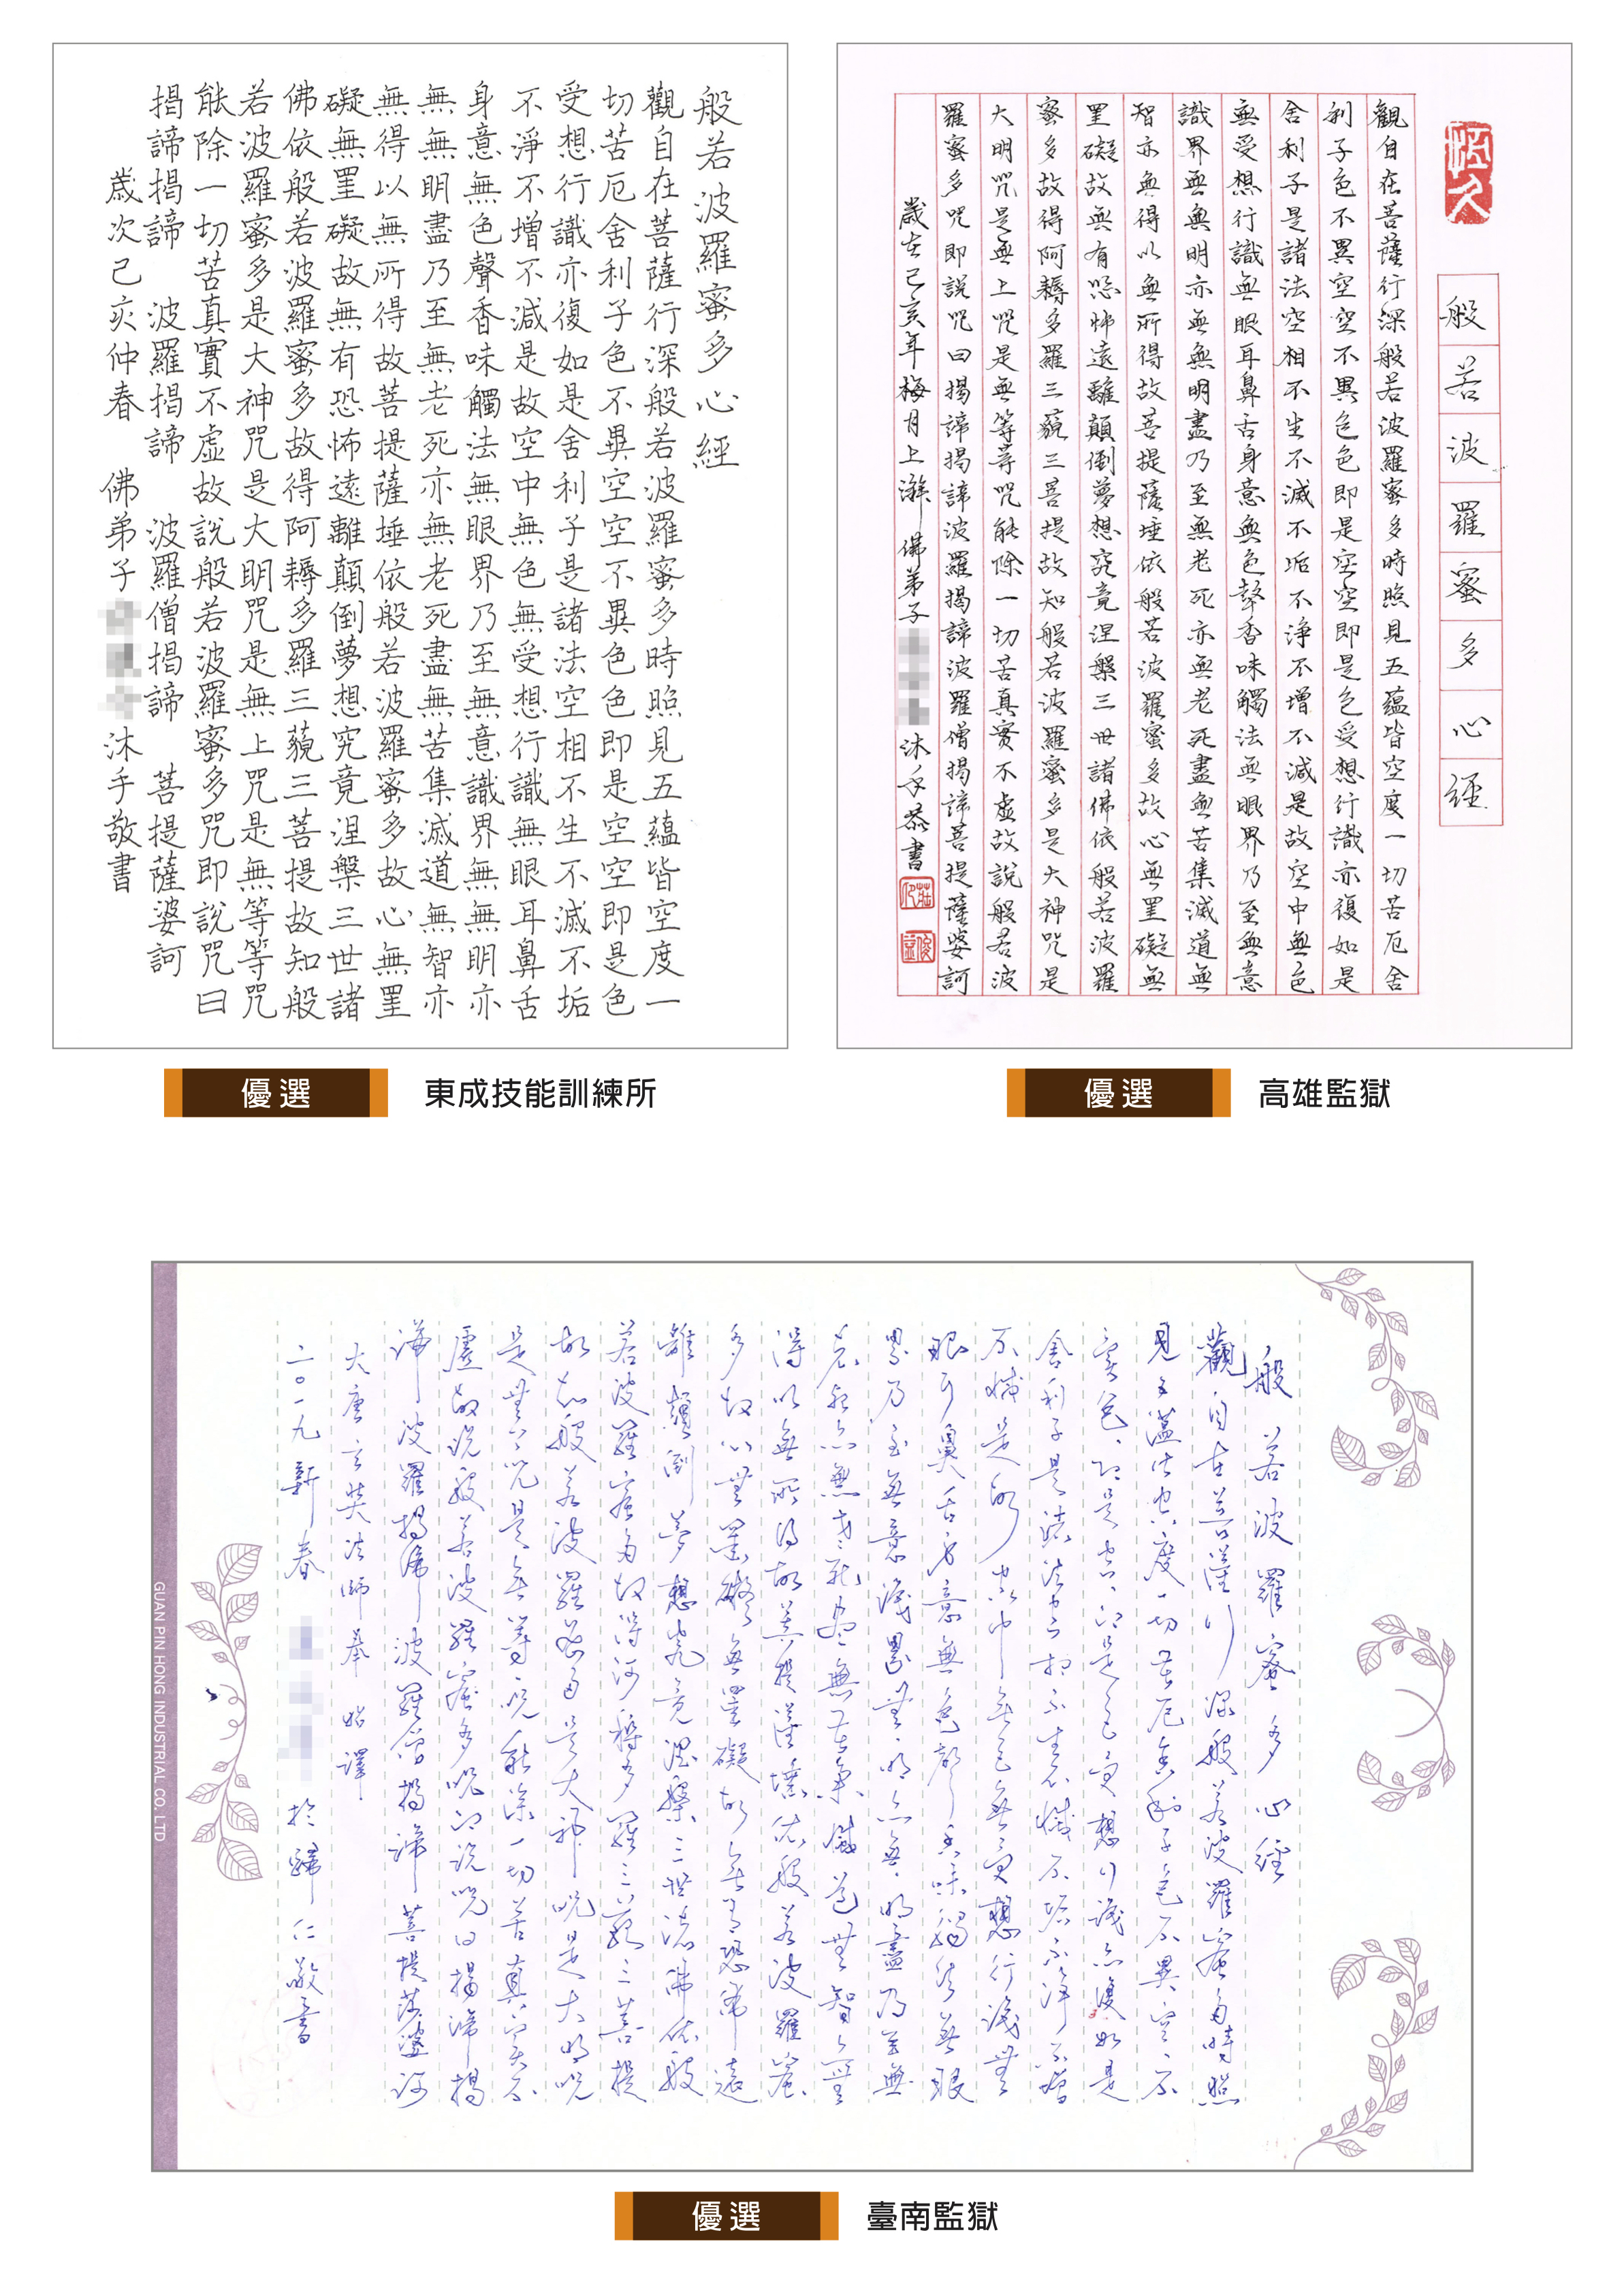 般若波羅蜜多心經
觀自在菩薩行深般若波羅蜜多時照見五蘊皆空度一
切苦厄舍利子色不異空空不異色色即是空空即是色
受想行識亦復如是舍利子是諸法空相不生不滅不垢
不淨不增不減是故空中無色無受想行識無眼耳鼻舌
身意無色聲香味觸法無眼界乃至無意識界無無明亦
無無明盡乃至無老死亦無老死盡無苦集滅道無智亦
無得以無所得故菩提薩埵依般若波羅蜜多故心無罣
礙無罣礙故無有恐怖遠離顛倒夢想究竟涅槃三世諸
佛依般若波羅蜜多故得阿耨多羅三藐三菩提故知般
若波羅蜜多是大神咒是大明咒是無上咒是無等等咒
能除一切苦真實不虛故說般若波羅蜜多咒即說咒曰
揭諦揭諦 波羅揭諦 波羅僧揭諦 菩提薩婆訶
歲次己亥仲春 佛弟子 沐手敬書
優選 東成技能訓練所
恆久
般若波羅蜜多心經
觀自在菩薩行深般若波羅蜜多時照見五蘊皆空度一切苦厄舍
利子色不異空空不異色色即是空空即是色受想行識亦復如是
舍利子是諸法空相不生不滅不垢不淨不增不減是故空中無色
無受想行識無眼耳鼻舌身意無色聲香味觸法無眼界乃至無意
識界無無明亦無無明盡乃至無老死亦無老死盡無苦集滅道無
智亦無得以無所得故菩提薩埵依般若波羅蜜多故心無罣礙無
罣礙故無有恐怖遠離顛倒夢想究竟涅槃三世諸佛依般若波羅
蜜多故得阿耨多羅三藐三菩提故知般若波羅蜜多是大神咒是
大明咒是無上咒是無等等咒能除一切苦真實不虛故說般若波
羅蜜多咒即說咒曰揭諦揭諦波羅揭諦波羅僧揭諦菩提薩婆訶
歲在己亥年梅月上澣 佛弟子 沐手恭書
優選 高雄監獄
般若波羅蜜多心經
觀自在菩薩行深般若波羅蜜多時照
見五蘊皆空度一切苦厄舍利子色不異空、不
異色、即是空、即是色受想行識亦復如是
舍利子是諸法空相不生不滅不垢不淨不增
不減是故空中無色無受想行識無
眼耳鼻舌身意無色聲香味觸法無眼
界乃至無意識界無、明亦無、明盡乃至無
老死亦無老死盡無苦集滅道無智亦無
得以無所得故菩提薩埵依般若波羅蜜
多故心無罣礙無罣礙故無有恐怖遠
離顛倒夢想究竟涅槃三世諸佛依般
若波羅蜜多故得阿耨多羅三藐三菩提
故知般若波羅蜜多是大神咒是大明咒
是無上咒是無等、咒能除一切苦真實不
虛故說般若波羅蜜多咒即說咒曰揭諦揭
諦波羅揭諦波羅僧揭諦菩提薩婆訶
大唐玄奘法師奉詔譯
二〇一九新春 於歸仁敬書
GUAN PIN HONG INDUSTRIAL CO. LTD
優選 臺南監獄